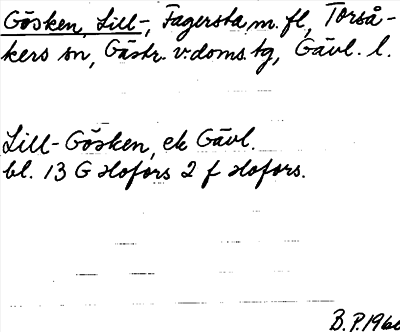 Gösken, Lill-, Fagersta, m. fl, Torså-
kers sn, Gästr. v:doms. tg, Gävl. l.
Lill-Gösken, ek Gävl.
bl. 13 G Hofors 2 f Hofors.
B.P. 1960